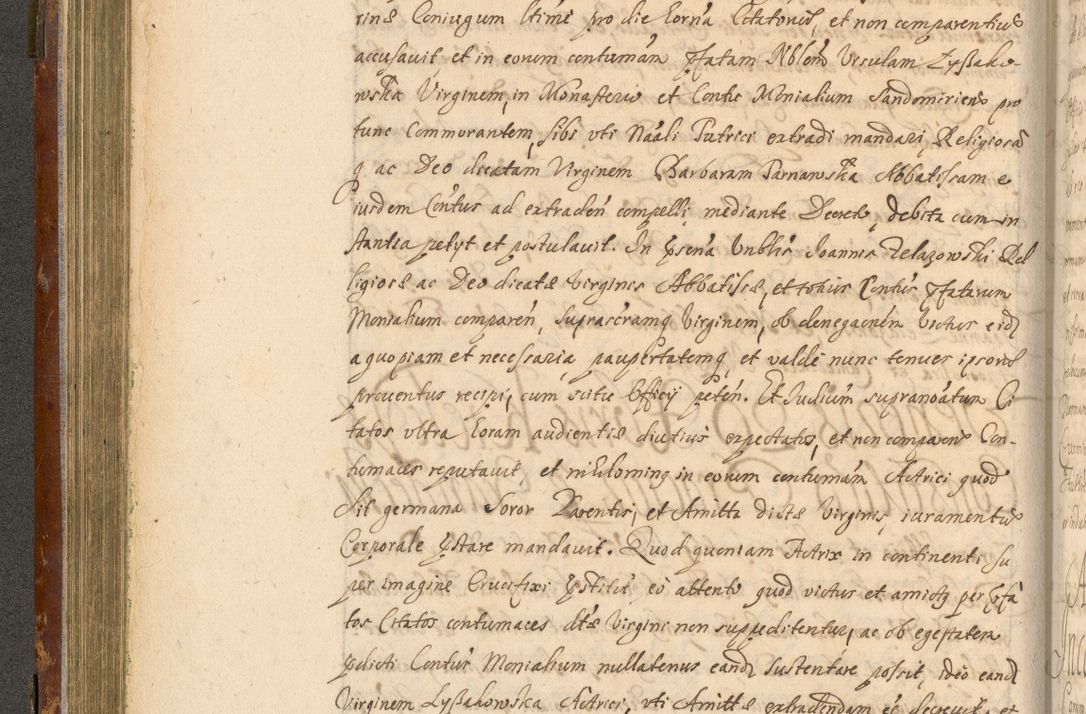 rinæ Coniugum ltimè pro die horna Citatorũ, et non comparentiũ
accusavit et in eorum contumãm pfatam Nblem Ursulam Lyssako-
wska Virginem, in Monasterio et Contu Monialium Sandomirien pro
tunc Commorantem, sibi uti Naali Tutrici extradi mandari, Religiosã
q ac Deo dicatam Virginem Barbaram Parnawska Abbatissam e
iusdem Contus ad extraden compelli mediante Decreto, debita cum in
stantia petyt et postulavit. In psena Vnblis Joannis Zelazowski Rel
ligiosæ ac Deo dicatæ Virginis Abbatissæ, et totius Contus pfatarum
Monialium comparen, suprascramq Virginem, ob denegacnem victus eid
a quopiam et necessaria paupertatemq et valde nunc tenues ipsorũ
proventus recipi, cum scitu Officy peten. Et Judium supranoatum Ci
tatos ultra horam audientiæ diutius expectatos, et non comparen Con-
tumaces reputavit, et nihilorning in eorum contumãm Actrici quod
sit germana Soror Parentis, et Amitta dictæ Virginis, iuramentũ
Corporale pstare mandavit. Quod quoniam Actrix in continenti su
per imagine Crucifixi pstitit, eò attento quod victus et amictq per pfa
tos Citatos contumaces dtæ Virgini non suppeditentur, ac ob egestatem
pdicti Contus Monialium nullatenus eand sustentare possit, ideò eand
Virginem Lyssakowska Actrici, uti Amittæ extradendam eè decrevit, et